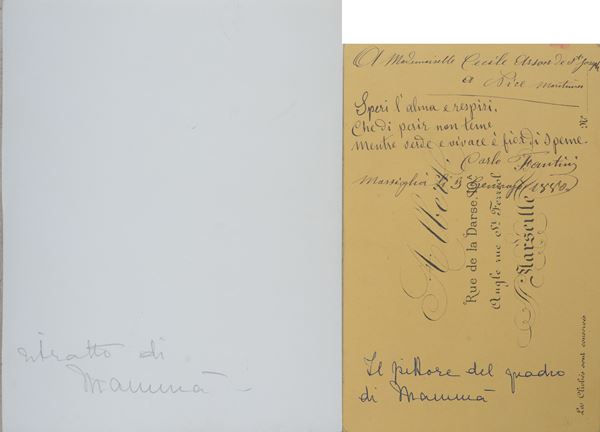 ritratto di
Mammà
A Mademoiselle Cecile Arson de St Joseph
a Nice Maritimes
Speri l'alma e respiri,
Che di perir non teme
Mentre verde e vivace è fior di speme.
Carlo Fantini
Marsiglia 1880
Rue de la Darse,
Angle rue St Ferréol
Marseille
No
Les Clichés sont conservés
Il pittore del quadro
di Mammà